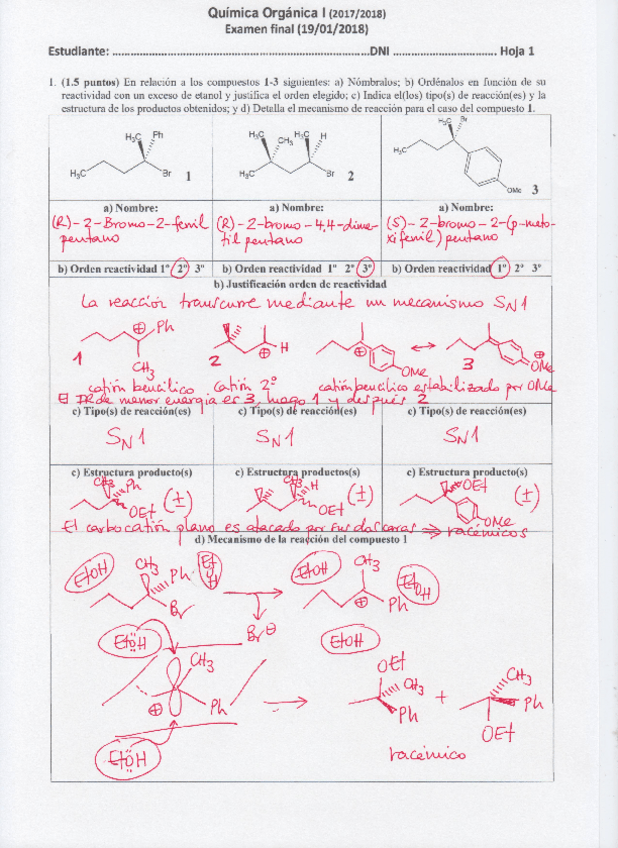 Química Orgánica I (2017/2018)
Examen final (19/01/2018)
Estudiante: ........................................................................DNI ................................ Hoja 1
1. (1.5 puntos) En relación a los compuestos 1-3 siguientes: a) Nómbralos; b) Ordénalos en función de su
reactividad con un exceso de etanol y justifica el orden elegido; c) Indica el(los) tipo(s) de reacción(es) y la
estructura de los productos obtenidos; y d) Detalla el mecanismo de reacción para el caso del compuesto 1.
H₃C Ph H₃C Br 1
H₃C CH₃ H₃C H H₃C Br 2
H₃C Br H₃C OMe 3
a) Nombre: a) Nombre: a) Nombre:
(R)-2-Bromo-2-fenil (R)-2-bromo-4,4-dime- (S)-2-bromo-2-(p-meto-
pentano til pentano xifenil) pentano
b) Orden reactividad 1º 2º 3º b) Orden reactividad 1º 2º 3º b) Orden reactividad 1º 2º 3º
b) Justificación orden de reactividad
La reacción transcurre mediante un mecanismo SN1
1 ⊕ Ph CH₃ 2 ⊕ H ⊕ OMe ↔ 3 ⊕ OMe
catión bencílico catión 2º catión bencílico estabilizado por OMe
El IR de menor energía es 3, luego 1 y después 2
c) Tipo(s) de reacción(es) c) Tipo(s) de reacción(es) c) Tipo(s) de reacción(es)
SN1 SN1 SN1
c) Estructura producto(s) c) Estructura productos(s) c) Estructura producto(s)
CH₃ Ph OEt (±) CH₃ H OEt (±) OEt OMe (±)
El carbocatión plano es atacado por sus dos caras ⇒ racémicos
d) Mecanismo de la reacción del compuesto 1
EtOH CH₃ Ph Br EtOH → EtOH CH₃ ⊕ Ph EtOH
EtÖH Br⊖ EtOH
CH₃ ⊕ Ph → OEt CH₃ Ph + CH₃ Ph OEt
EtÖH racémico